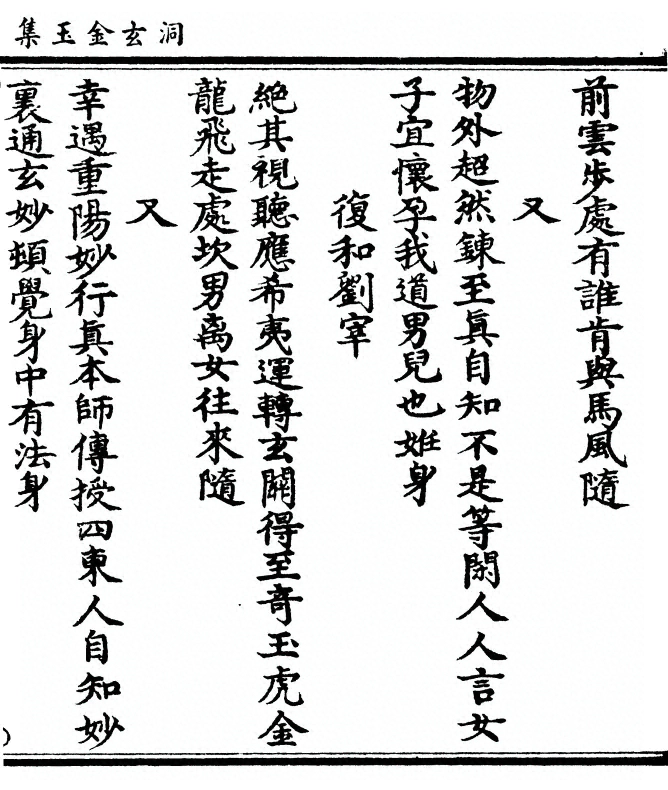 洞玄金玉集
前雲步處有誰肯與馬風隨
又
物外超然鍊至眞自知不是等閑人人言女
子宜懷孕我道男兒也姙身
復和劉宰
絕其視聽應希夷運轉玄關得至竒玉虎金
龍飛走處坎男离女往來隨
又
幸遇重陽妙行眞本師傳授四東人自知妙
裏通玄妙頓覺身中有法身